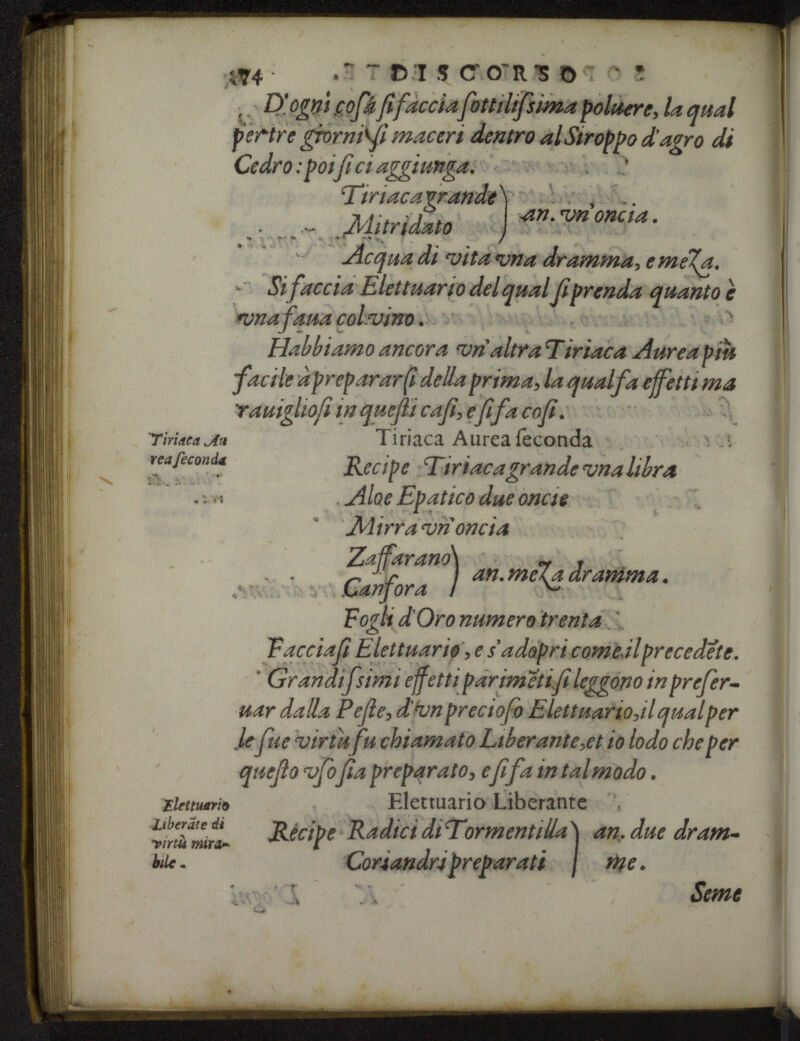 174 DISCORSO
D'ogni cosa si faccia sottilissima poluere, la qual
per tre giorni si maceri dentro al Siroppo d'agro di
Cedro: poi si ci aggiunga.
Tiriaca grande
Mitridato } an. vn'oncia.
Acqua di vita vna dramma, e meza.
Si faccia Elettuario del qual si prenda quanto è
vna faua col vino.
Habbiamo ancora vn'altra Tiriaca Aurea più
facile à prepararsi della prima, la qual fa effetti ma
rauigliosi in questi casi, e si fa cosi.
Tiriaca Au
rea seconda
Tiriaca Aurea seconda
Recipe Tiriaca grande vna libra
Aloe Epatico due oncie
Mirra vn'oncia
Zaffarano
Canfora } an. meza dramma.
Fogli d'Oro numero trenta
Facciasi Elettuario, e s'adopri come il precedẽte.
Grandissimi effetti parimẽti si leggono in preser-
uar dalla Peste, d'vn precioso Elettuario, il qual per
le sue virtù fu chiamato Liberante, et io lodo che per
questo vso sia preparato, e si fa in tal modo.
Elettuario
Liberãte di
virtù mira-
bile.
Elettuario Liberante
Recipe Radici di Tormentilla } an. due dram-
Coriandri preparati } me.
Seme